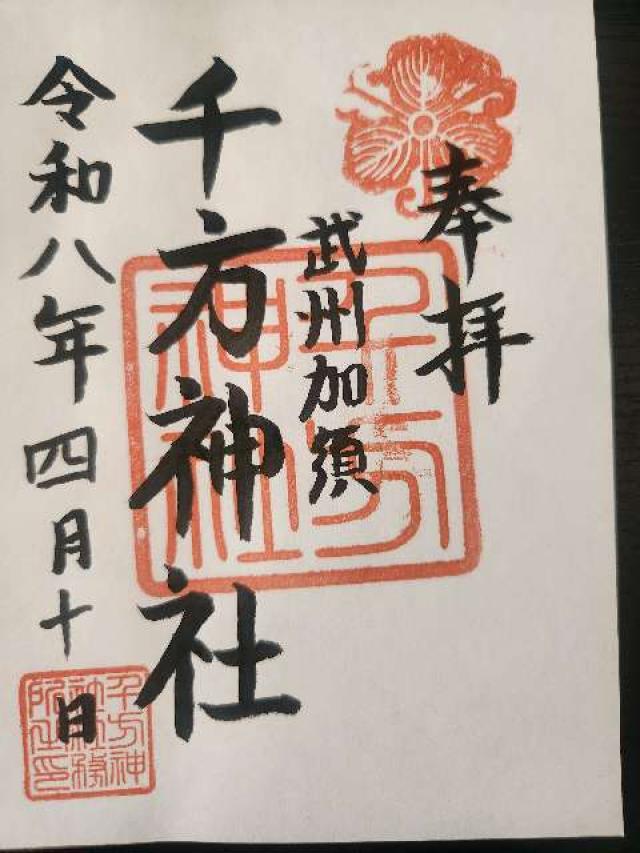 奉拝
武州加須
千方神社
令和八年四月十日
千方神社
千方神社社務所之印